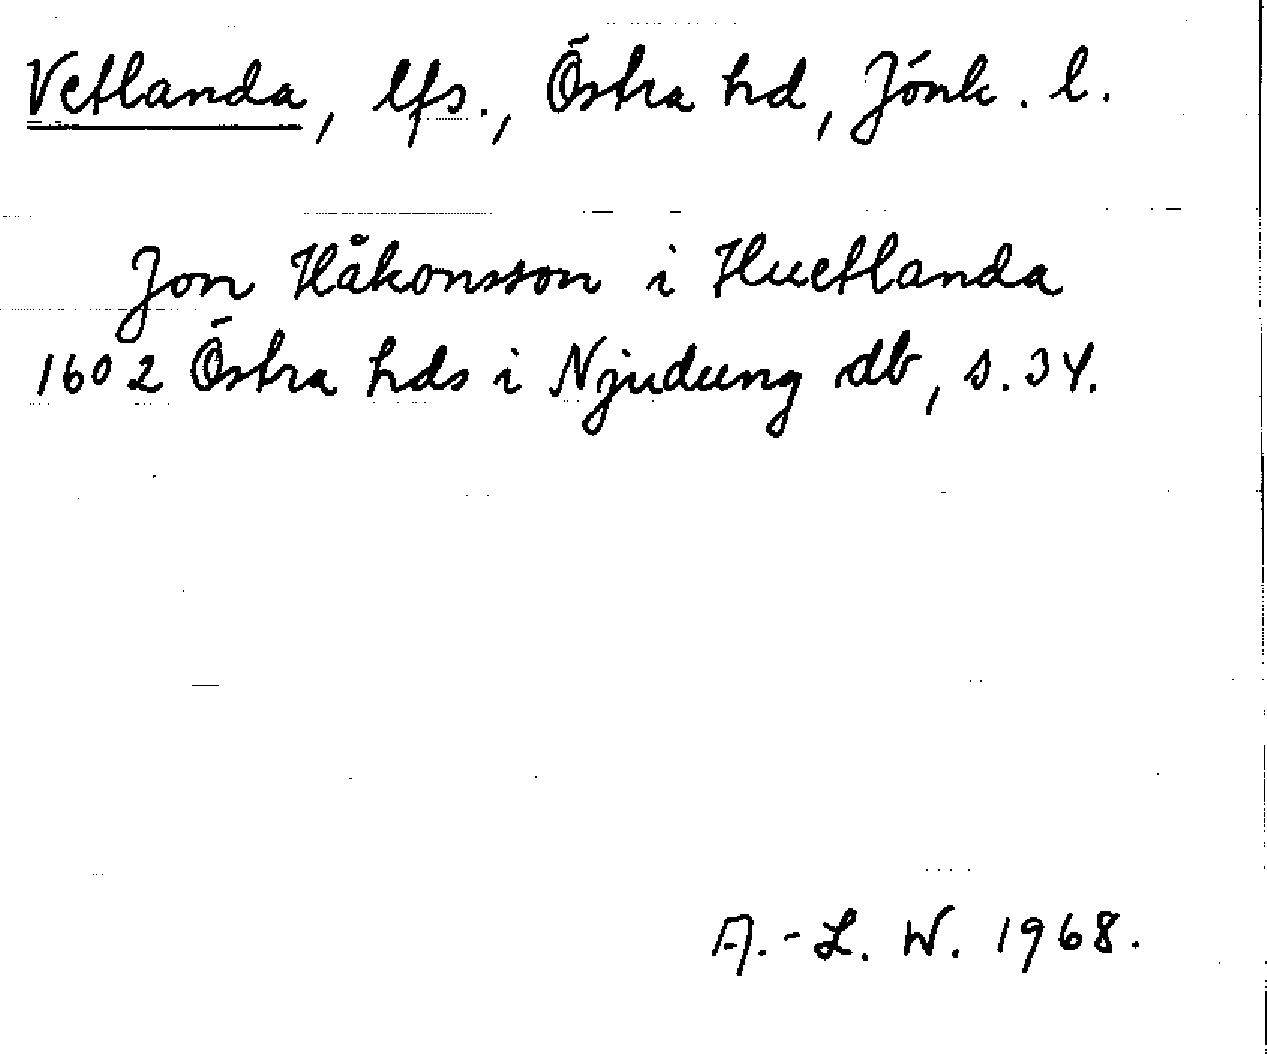 Vetlanda, lfs., Östra hd, Jönk. l.
Jon Håkonsson i Huetlanda
1602 Östra hds i Njudung db, s. 34.
A.-L. W. 1968.